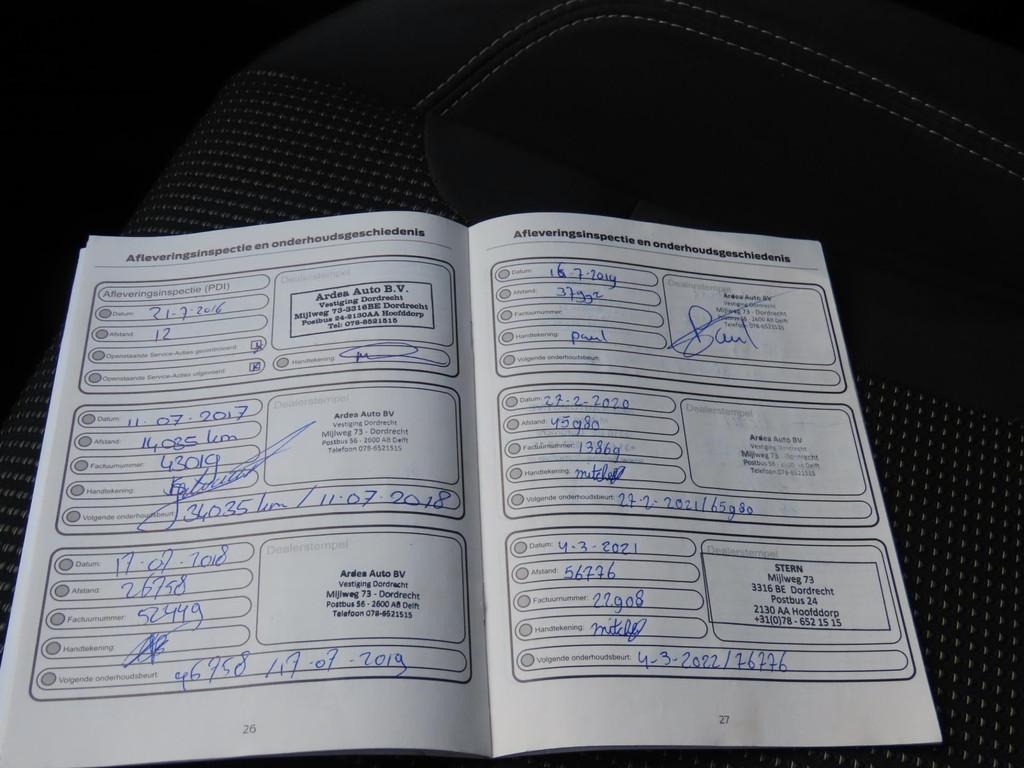 Afleveringsinspectie en onderhoudsgeschiedenis
Afleveringsinspectie (PDI)
Datum: 21-7-2016
Afstand: 12
Openstaande Service-Acties gecontroleerd:
Openstaande Service-Acties uitgevoerd:
Dealerstempel
Ardea Auto B.V.
Vestiging Dordrecht
Mijlweg 73-3316BE Dordrecht
Postbus 24-2130AA Hoofddorp
Tel: 078-6521515
Handtekening:
Datum: 11-07-2017
Afstand: 14035 km
Factuurnummer: 43019
Handtekening:
Volgende onderhoudsbeurt: 34035 km / 11-07-2018
Dealerstempel
Ardea Auto BV
Vestiging Dordrecht
Mijlweg 73 - Dordrecht
Postbus 56 - 2600 AB Delft
Telefoon 078-6521515
Datum: 17-07-2018
Afstand: 26758
Factuurnummer: 52449
Handtekening:
Volgende onderhoudsbeurt: 46758 / 17-07-2019
Dealerstempel
Ardea Auto BV
Vestiging Dordrecht
Mijlweg 73 - Dordrecht
Postbus 56 - 2600 AB Delft
Telefoon 078-6521515
26
Afleveringsinspectie en onderhoudsgeschiedenis
Datum: 16-7-2019
Afstand: 37992
Factuurnummer:
Handtekening: Paul
Volgende onderhoudsbeurt:
Dealerstempel
Ardea Auto BV
Vestiging Dordrecht
Mijlweg 73 - Dordrecht
Postbus 56 - 2600 AB Delft
Telefoon 078-6521515
Paul
Datum: 27-2-2020
Afstand: 45980
Factuurnummer: 13869
Handtekening: mitchel
Volgende onderhoudsbeurt: 27-2-2021/65980
Dealerstempel
Ardea Auto BV
Vestiging Dordrecht
Mijlweg 73 - Dordrecht
Postbus 56 - 2600 AB Delft
Telefoon 078-6521515
Datum: 4-3-2021
Afstand: 56776
Factuurnummer: 22908
Handtekening: mitchel
Volgende onderhoudsbeurt: 4-3-2022/76776
Dealerstempel
STERN
Mijlweg 73
3316 BE Dordrecht
Postbus 24
2130 AA Hoofddorp
+31(0)78 - 652 15 15
27